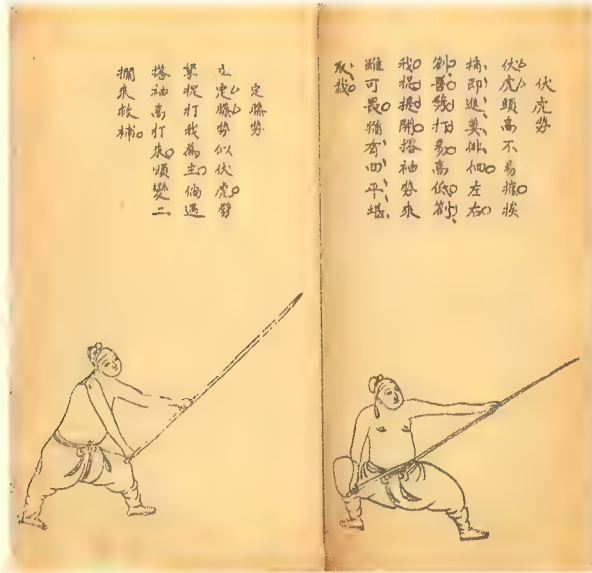 伏虎勢
伏虎頭高不易撥挨
梢即進莫俳佪左右
剳番發打易高低剳
我捉開搭袖勢來
雖可畏猶有四平堪
取裁
定膝勢
立膝勢似伏虎劈
緊捉打我為主倘遇
搭袖高打來順變二
攔來救補